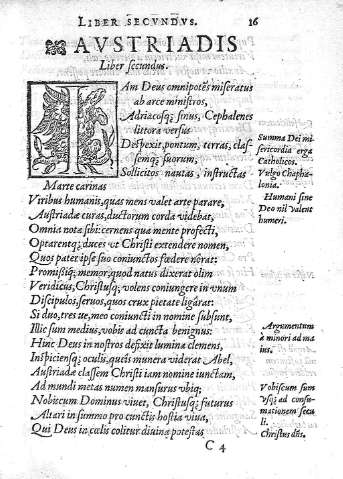 LIBER SECVNDVS. 16
AVSTRIADIS
Liber secundus.
IAm Deus omnipotẽs miseratus
ab arce ministros,
Adriacosq; sinus, Cephalenes
littora versus
Despexit, pontum, terras, clas-
semq; suorum,
Sollicitos nautas, instructas
Marte carinas
Viribus humanis, quas mens valet arte parare,
Austriadæ curas, ductorum corda videbat,
Omnia nota sibi: cernens qua mente profecti,
Optarentq; duces vt Christi extendere nomen,
Quos pater ipse suo coniunctos fœdere norat:
Promissiq; memor, quod natus dixerat olim
Veridicus, Christusq; volens coniungere in vnum
Discipulos, seruos, quos crux pietate ligârat:
Si duo, tres ue, meo coniuncti in nomine subsunt,
Illic sum medius, vobis ad cuncta benignus:
Hinc Deus in nostros defixit lumina clemens,
Inspiciensq; oculis, queis munera viderat Abel,
Austriadæ classem Christi iam nomine iunctam,
Ad mundi metas numen mansurus vbiq;
Nobiscum Dominus viuet, Christusq; futurus
Altari in summo pro cunctis hostia viuat,
Qui Deus in cœlis colitur diuina potestas
C 4
Summa Dei mi-
sericordia erga
Catholicos.
Vulgo Chapha-
lonia.
Humani sine
Deo nil valent
humeri.
Argumentum
a minori ad ma
ius.
Vobiscum sum
vsq; ad consu-
mationem secu
li.
Christus dñs.